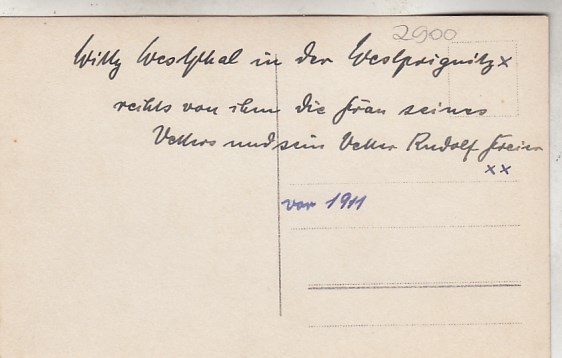 2900
Willy Westphal in der Westprignitz x
rechts von ihm die Frau seines
Vetters und sein Vetter Rudolf Freier
xx
vor 1911